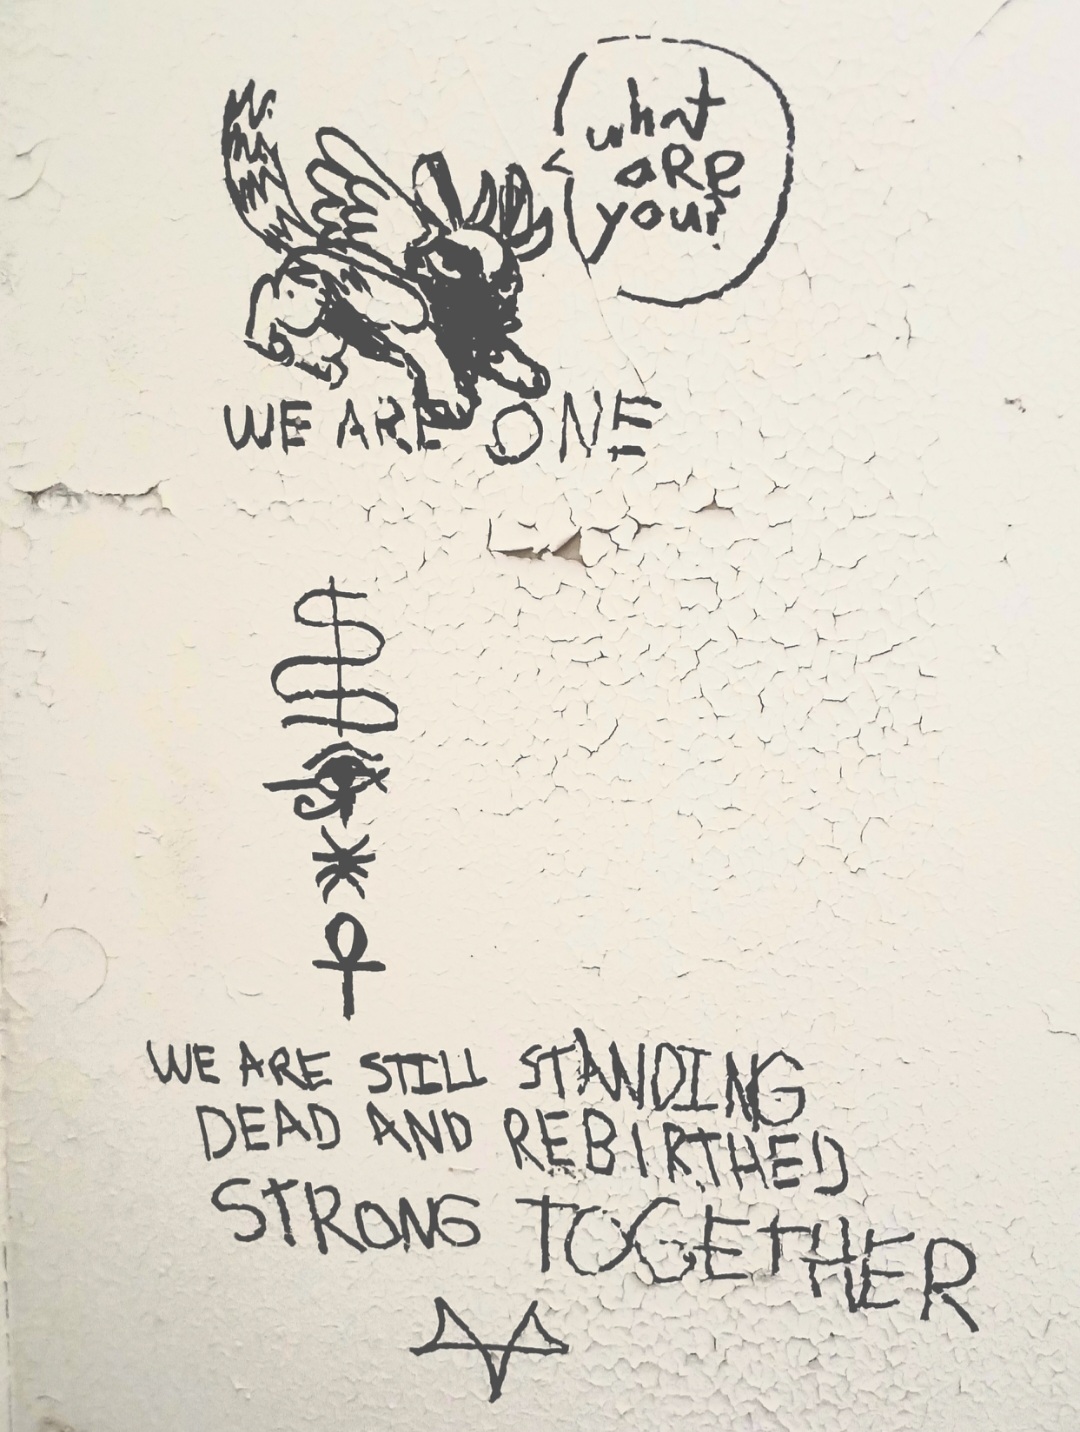 what
aRe
you?
WE ARE ONE
WE ARE STILL STANDING
DEAD AND REBIRTHED
STRONG TOGETHER